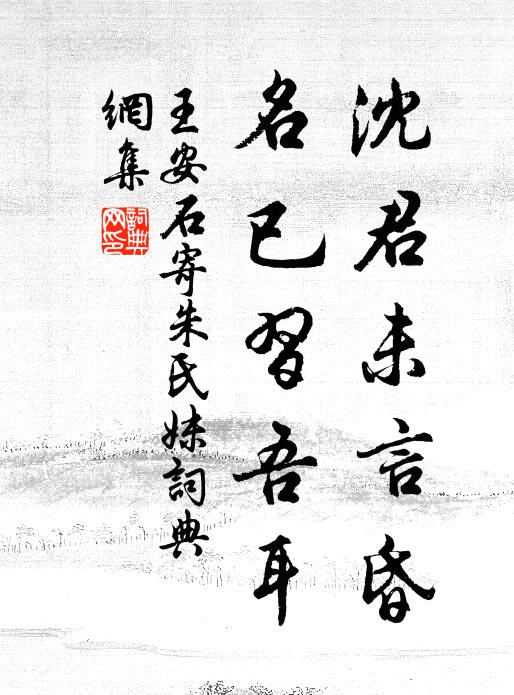 沈君未言昏
名已習吾耳
王安石寄朱氏妹詞典
網集
詞典
网印